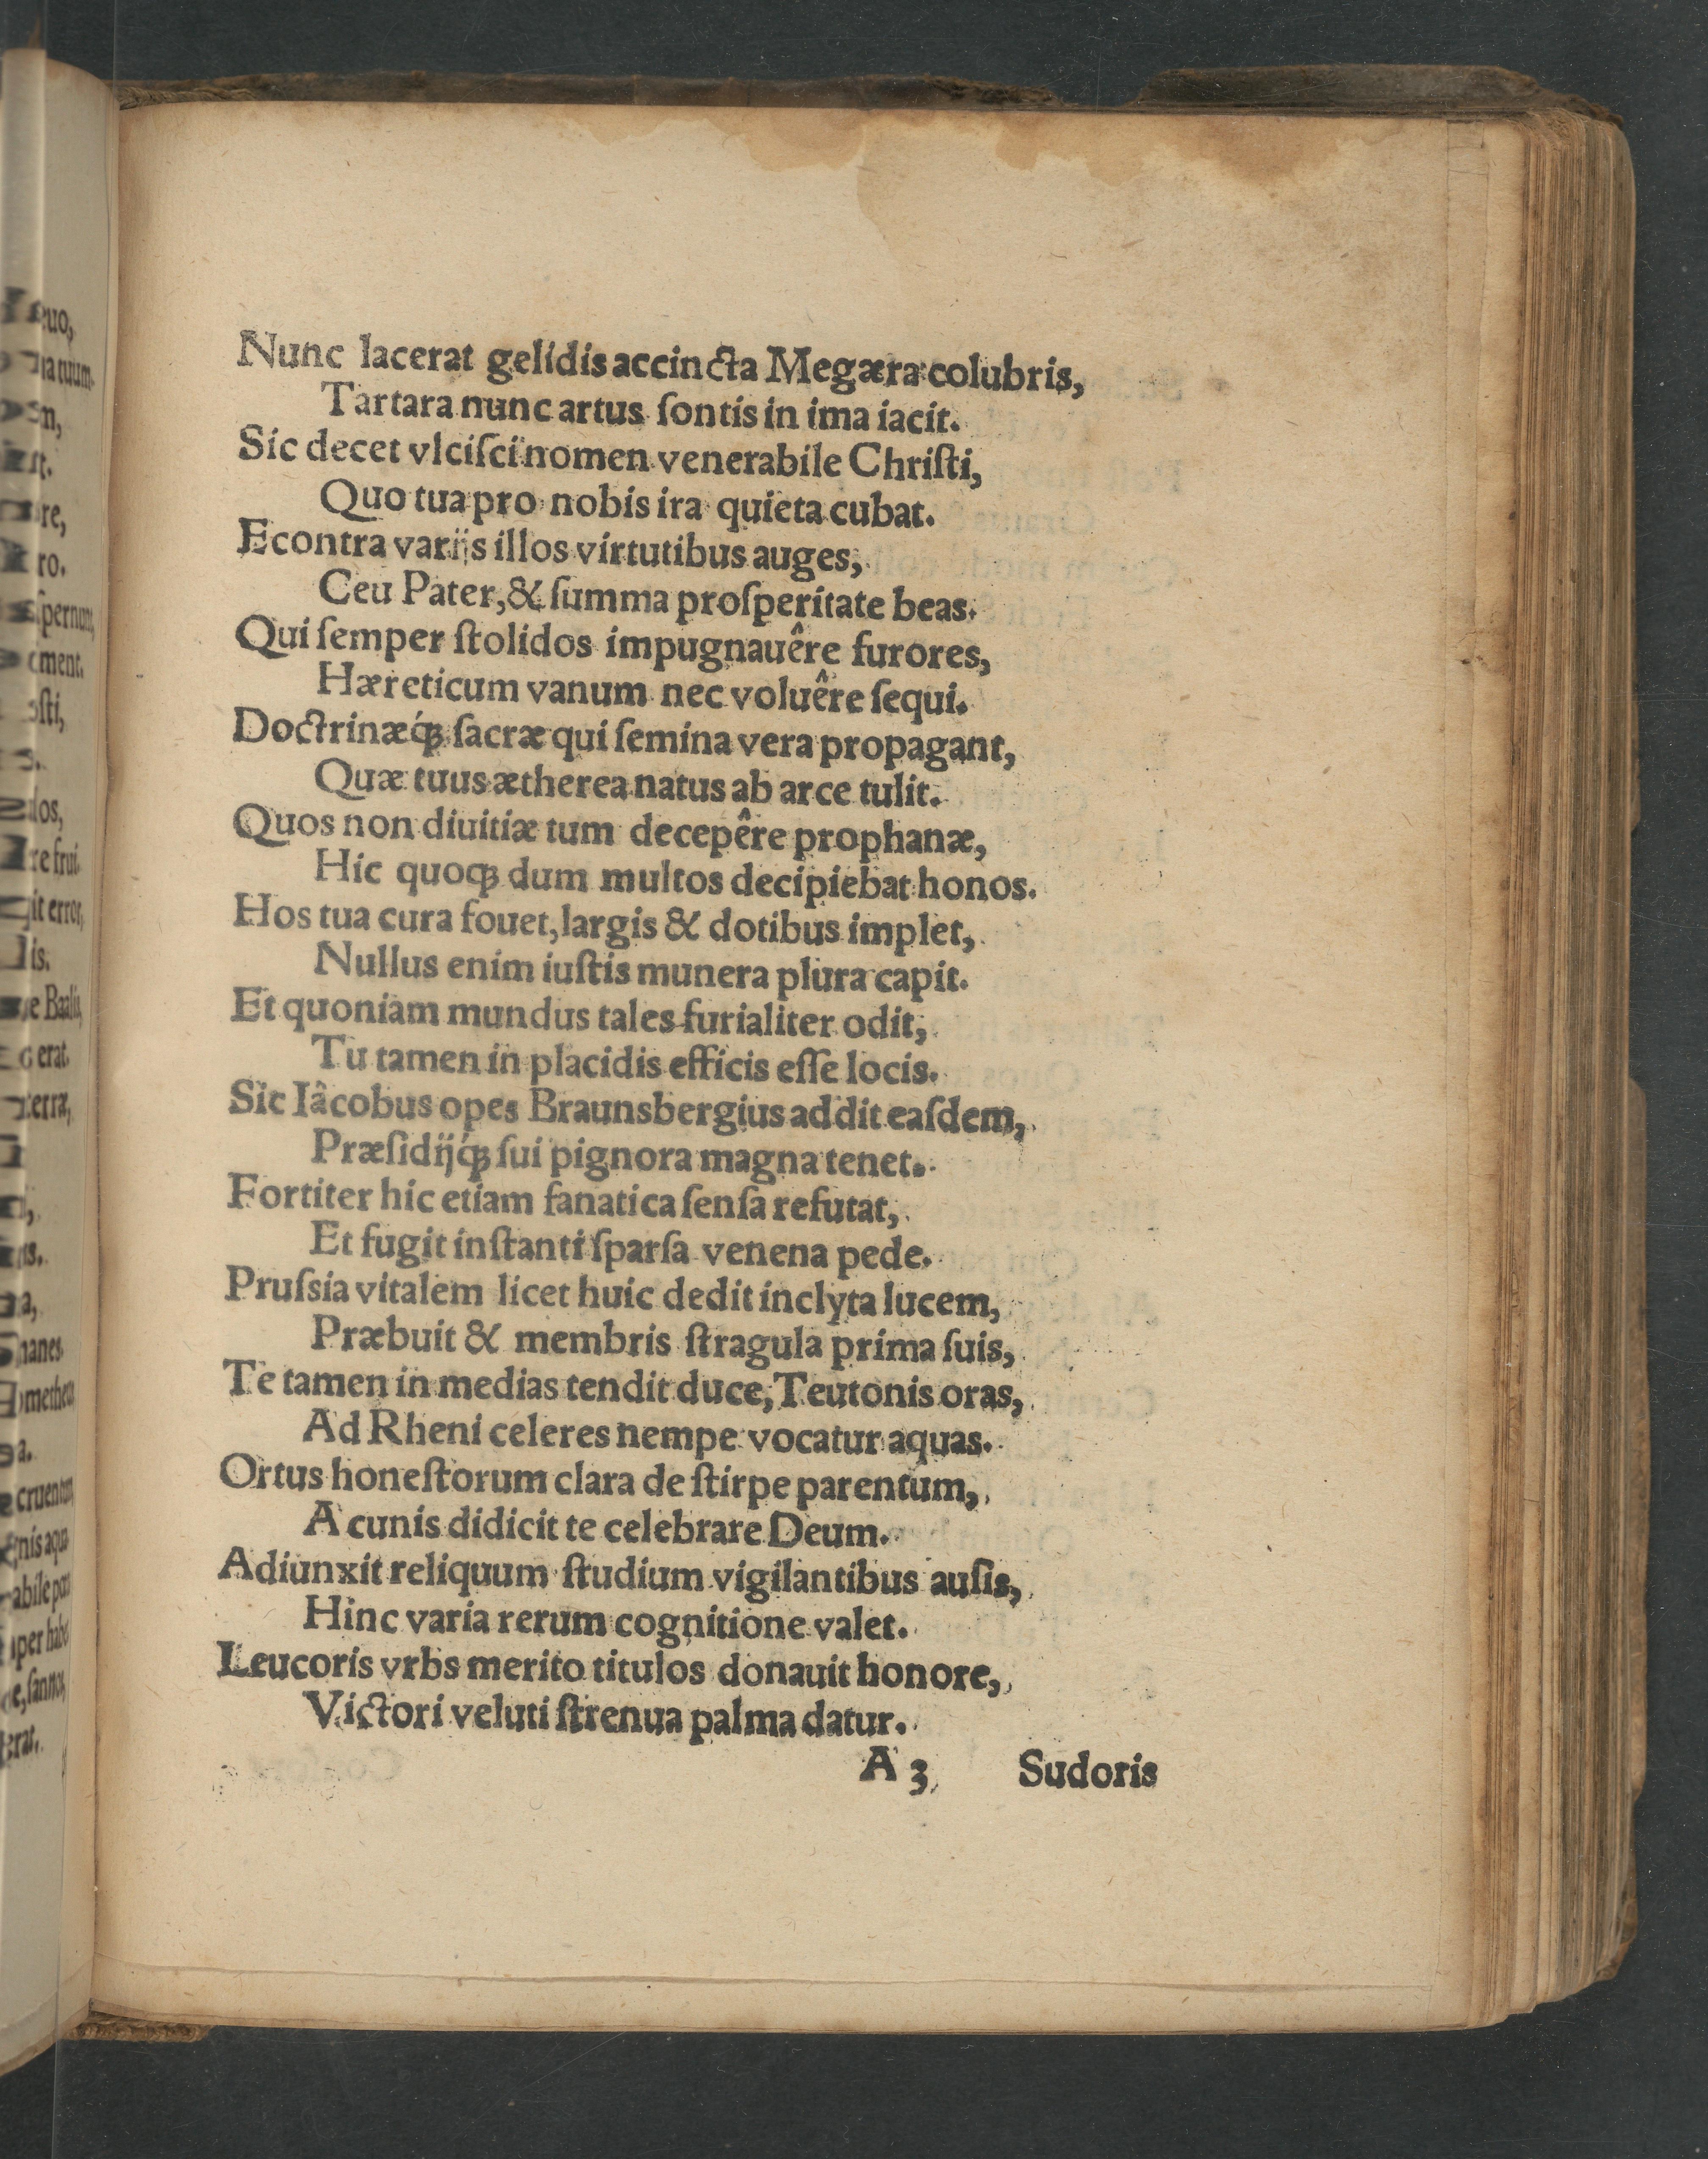 Nunc lacerat gelidis accincta Megæra colubris,
Tartara nunc artus ſontis in ima iacit.
Sic decet vlciſci nomen venerabile Chriſti,
Quo tua pro nobis ira quieta cubat.
Econtra varijs illos virtutibus auges,
Ceu Pater, & ſumma proſperitate beas.
Qui ſemper ſtolidos impugnauêre furores,
Hæreticum vanum nec voluêre ſequi.
Doctrinæq́ꝫ ſacræ qui ſemina vera propagant,
Quæ tuus ætherea natus ab arce tulit.
Quos non diuitiæ tum decepêre prophanæ,
Hic quoqꝫ dum multos decipiebat honos.
Hos tua cura fouet, largis & dotibus implet,
Nullus enim iuſtis munera plura capit.
Et quoniam mundus tales furialiter odit,
Tu tamen in placidis efficis eſſe locis.
Sic Iâcobus opes Braunsbergius addit eaſdem,
Præſidijq́ꝫ ſui pignora magna tenet.
Fortiter hic etiam fanatica ſenſa refutat,
Et fugit inſtanti ſparſa venena pede.
Pruſsia vitalem licet huic dedit inclyta lucem,
Præbuit & membris ſtragula prima ſuis,
Te tamen in medias tendit duce, Teutonis oras,
Ad Rheni celeres nempe vocatur aquas.
Ortus honeſtorum clara de ſtirpe parentum,
A cunis didicit te celebrare Deum.
Adiunxit reliquum ſtudium vigilantibus auſis,
Hinc varia rerum cognitione valet.
Leucoris vrbs merito titulos donauit honore,
Victori veluti ſtrenua palma datur.
A 3 Sudoris